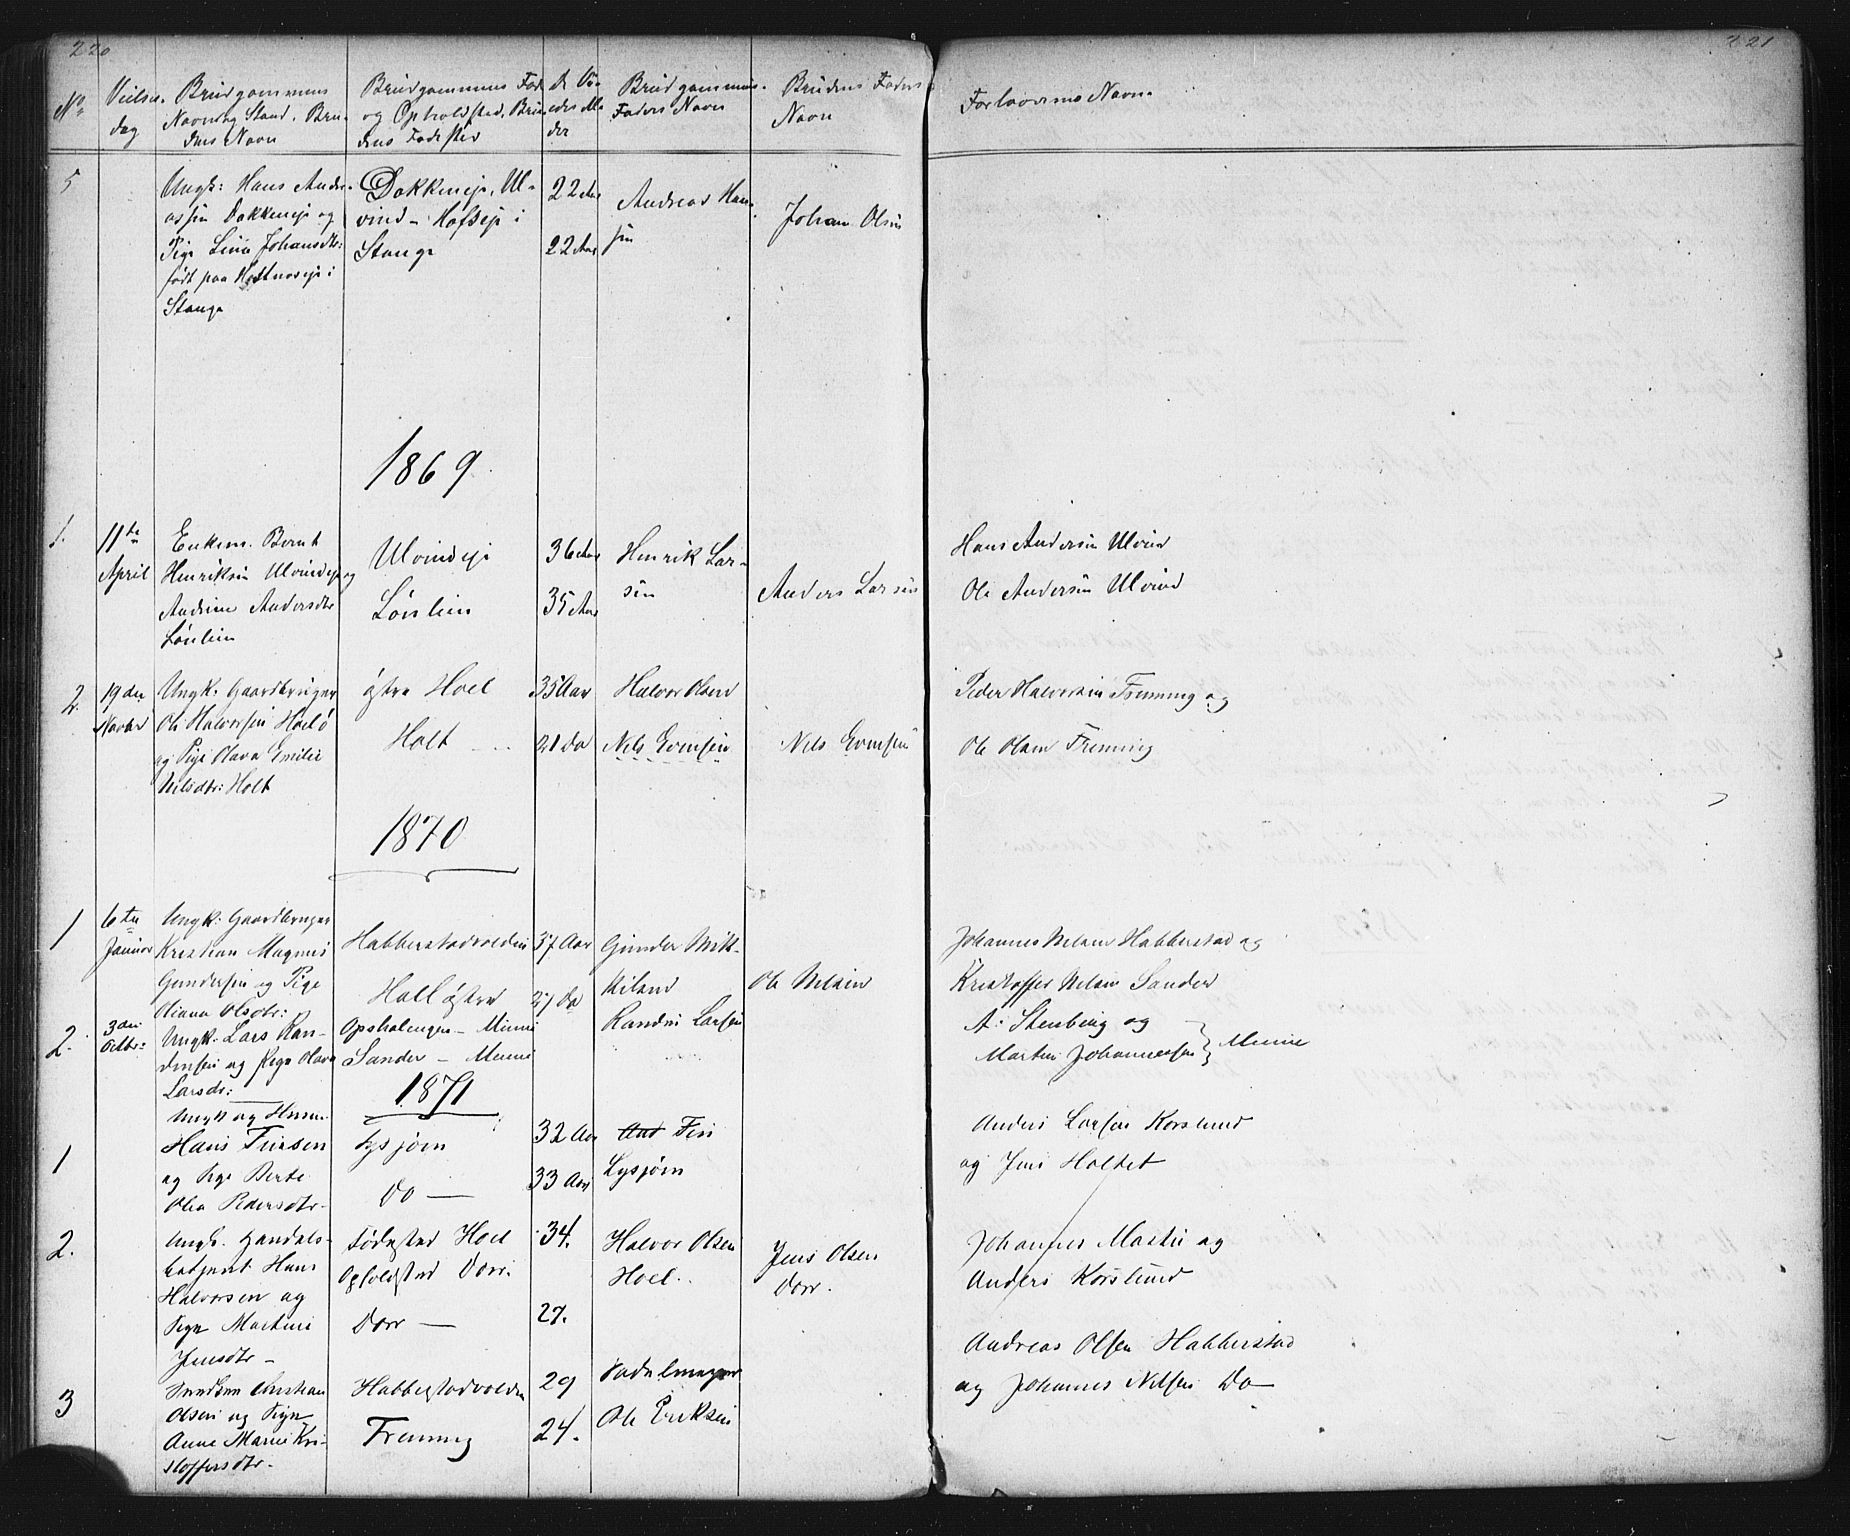 220
221
No
Vielses-
dag
Brudgommens
Navn og Stand. Bru-
dens Navn
Brudgommens Føde
og Opholdsted, Bru-
dens Fødested
De Vi-
edes Al-
der
Brudgommens
Faders Navn
Brudens Faders
Navn
Forlovernes Navne
5
Ungk: Hans Andre-
assen Dokkeneje og
Pige Line Johansdtr:
født paa i
Stange
Dokkeneje, Ul-
vind - i
Stange
22 Aar
22 Aar
Andreas Han-
sen
Johan Olsen
1869
1.
11te
April
Enkem. Bernt
Henriksen Ulvindeje og
Andrine Andersdtr
Lønlien
Ulvindeje
Lønlien
36 Aar
35 Aar
Henrik Lar-
sen
Anders Larsen
Hans Andersen Ulvin
Ole Andersen Ulvin
2.
19den
Novbr
Ungk: Gaardbruger
Ole Halvorsen Hoel ø
og Pige Olava Emilie
Nilsdtr: Holt
østre Hoel
Holt
35 Aar
21 Do
Halvor Olsen
Nils Evensen
Nils Evensen
Peder Halvorsen Frenning og
Ole Olsen Frenning
1870
1
6te
Januar
Ungk: Gaardbruger
Kristian Magnus
Gundersen og Pige
Olsdtr:
Habberstadvolden
Hoel østre
37 Aar
27 Do
Gunder
Ole Nilsen
Johannes Nilsen Habberstad og
Kristoffer Nilsen Sander
2.
3die
Octbr:
Ungk: Lars Ran-
densen og Pige Olava
Larsdr:
Opsahlengen - Minne
Sander - Minne
Randen Larsen
A: Stenberg og
Martin Johannesen } Minne
1871
1
Ungk og
Hans Finsen
og Pige Berte
Olea Pedersdtr-
Lysjøen
Do -
32 Aar
33 Aar
Fin
Lysjøen
Anders Larsen Korslund
og Jens Holtet
2.
Ungk. Handels-
betjent Hans
Halvorsen og
Pige Martine
Jensdtr -
Fødested Hoel
Opholdsted Dorr.
Dorr -
34.
27.
Halvor Olsen
Hoel.
Jens Olsen
Dorr.
Johannes Mostue og
Anders Korslund
3
Christian
Olsen og Pige
Anne Marie Kri-
stoffersdtr.
Habberstadvolden
Frenning
29
24.
Ole Eriksen
Andreas Olsen Habberstad
og Johannes Nilsen Do